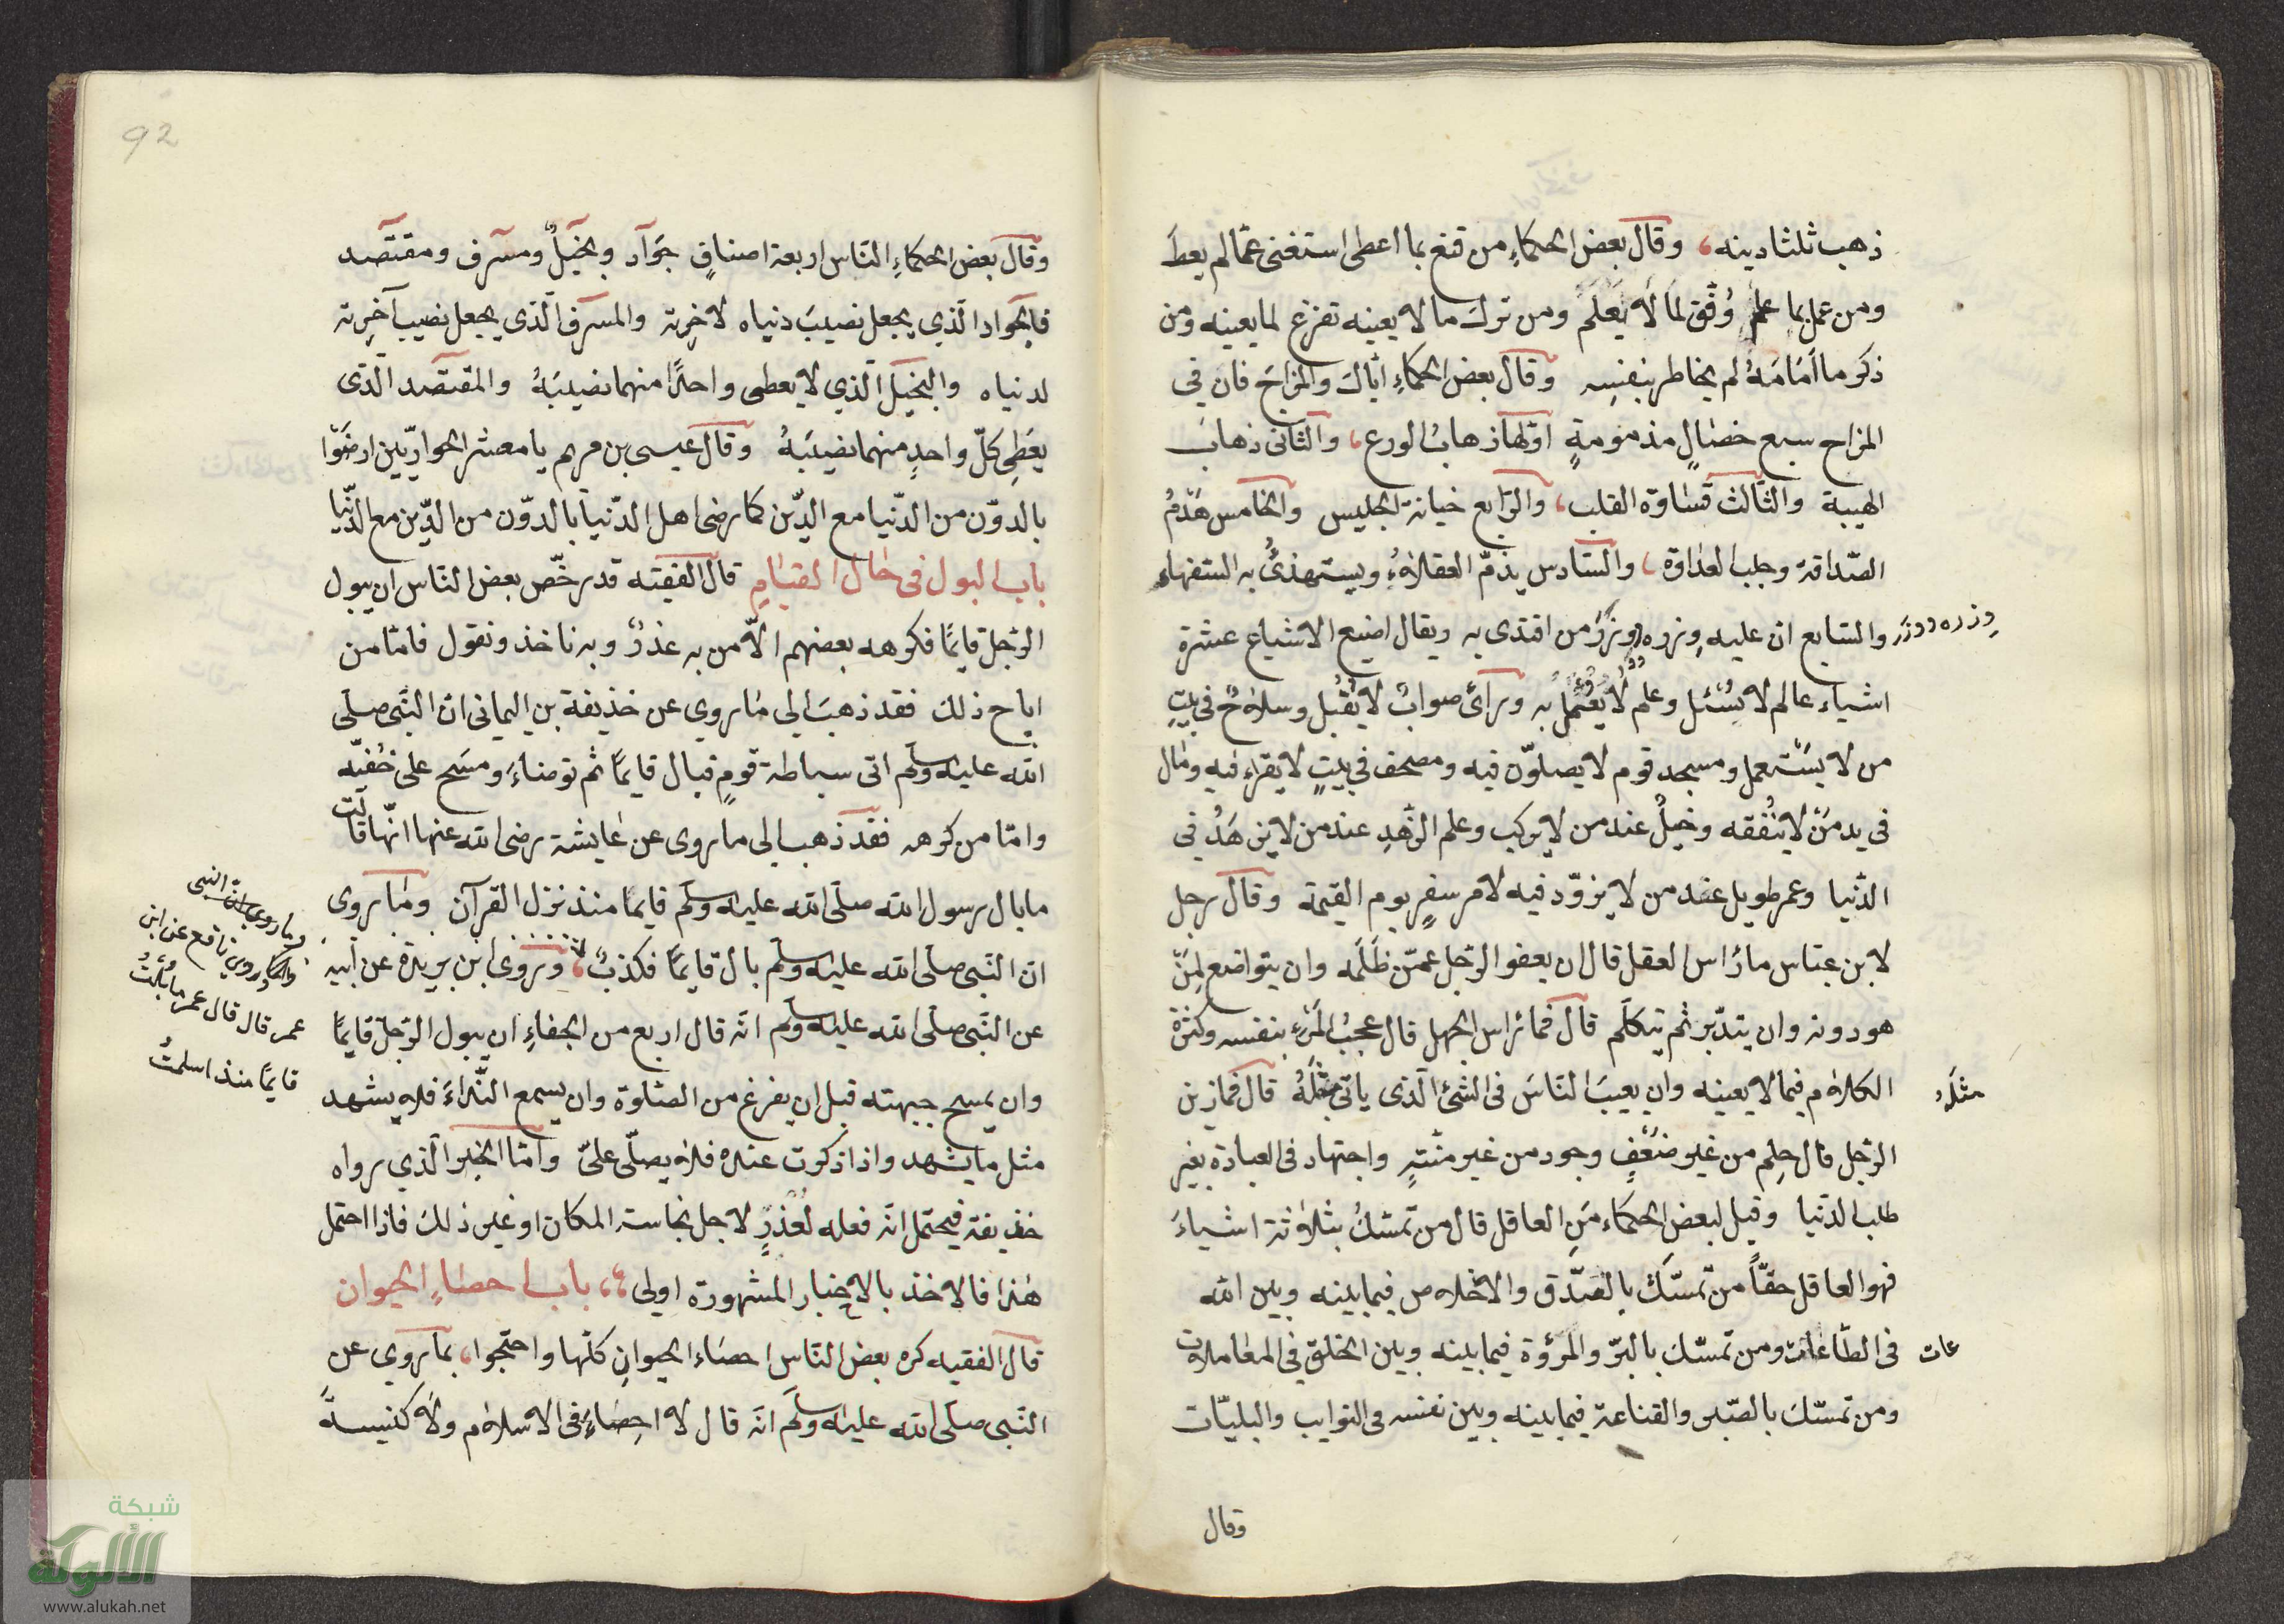 ذهب ثلثا دينه، وقال بعض الحكماءِ من قنع بما اعطى استغنى عمّا لم يعطَ
ومن عمل بما علم وُفّق لما لا يَعْلَم ومن ترك ما لا يعينه تفرغ لما يعينه ومن
ذكر ما اَمَامَهُ لم يخاطر بنفسِه وقال بعض الحكماءِ ايّاك والمزاحَ فان في
المزاح سبع خصالٍ مذمومةٍ اوّلها ذهابُ الورع، والثانى ذهابُ
الهيبة والثّالث قساوة القلب، والرّابع خيانة الجليس والخامس هَدْمُ
الصّداقة وجلب العداوة، والسّادس يذمّ العقلاءُ ويستهذئُ به السّفهاء
والسّابع ان عليه وِزره ووِزرَ من اقتدى به ويقال اضيع الاشياءِ عشرة
وِزره ووزر
اشياء عالم لا يُسْئل وعلم لا يُعْمَل به ورأىٌ صوابٌ لا يُقْبل وسلاحٌ في بيتِ
من لا يَسْتعمل ومسجد قوم لا يصلّون فيه ومصحف في بيتٍ لا يقراء فيه ومال
فى يد مَنْ لا يُنْفقه وخيلٌ عند من لا يركب وعلم الزّهدِ عند من لا يزهَدُ في
الدّنيا وعمر طويل عند من لا يزوّد فيه لامر سفرِ يوم القيمة وقال رجل
لابن عبّاس ما رأس العقل قال ان يعفو الرّجل عمّن ظَلَمه وان يتواضع لِمَنْ
هو دونه وان يتدّبر ثم يتكلّم قال فما رأس الجهل قال عجبُ المَرْءِ بنفسه وكثرة
الكلام فيما لا يعينه وان يعيبَ النّاسَ فى الشئ الّذى ياتى مِثْلَهُ قال فما زين
مثلَه
الرّجل قال حِلم من غير ضَعْفٍ وجود من غير منّةٍ واجتهاد فى العبادة بغير
طلب الدّنيا وقيل لبعض الحكماء مَنِ العاقل قال من تمسّكُ بثلاثة اشياءَ
فهو العاقل حقّاً من تمسّكَ بالصّدق والاخلاص فيما بينه وبين الله
فى الطّاعات ومن تمسّكَ بالبرّ والمرُؤة فيما بينه وبين الخلق في المعاملات
عات
ومن تمسّكَ بالصّبر والقناعة فيما بينه وبين نفسه فى النوايب والبليّات
وقال
92
وقال بعض الحكماءِ النّاس اربعة اصنافٍ جَوّاد وبخيلٌ ومسرف ومقتصد
فالجواد الّذي يجعل نصيبَ دنياه لاخرِته والمسرف الّذى يجعل نصيب آخرِته
لدنياه والبخيل الّذي لا يعطى واحدًا منهما نصيبَهُ والمقتصد الّذى
يعَطِى كلّ واحدٍ منهما نصيبَهُ وقال عيسى بن مريم يا معشر الحواريّين ارضَوْا
بالدوّن من الدّنيا مع الدّين كما رضى اهل الدّنيا بالدوّن من الدّين مع الدّنيا
باب البول فى حال القيام قال الفقيه قد رخّص بعض النّاس ان يبول
الرّجل قايمًا فكرهه بعضهم الّا من به عذرٌ وبه ناخذ ونقول فامّا من
اباح ذلك فقد ذهبَ الى ما روي عن حذيفة بن اليمانى انّ النّبى صلّى
الله عليه وسلّم اتى سباطة قومٍ فبال قايمًا ثم توضاءَ ومسَح على خُفيّه
وامّا من كرهه فقد ذهب الى ما روى عن عايشة رضى الله عنها انّها قالت
ما بال رسول الله صلّى الله عليه وسلّم قايمًا منذ نزل القرآن وما روى
انّ النّبى صلّى الله عليه وسلّم بال قايمًا فكذبٌ، وروى ابن بريدة عن ابيه
وما روى انّ النبى
وكما روى نافع عن ابن
عمر قال قال عمر ما بُلْتُ
قايمًا منذ اسلمتُ
عن النّبى صلّى الله عليه وسلّم انّه قال اربع من الجفاءِ ان يبول الرّجل قايمًا
وان يمسح جبهته قبل ان يفرغ من الصّلوة وان يسمع النّداءَ فلا يشهد
مثل ما يشهد واذا ذكرت عنده فلا يصلّى علىّ وامّا الخبر الّذي رواه
حذيفة فيحتمل انّه فعله لعُذرٍ لاجل نجاسة المكان او غير ذلك فاذا احتمل
هٰذا فالاخذ بالاخبار المشهورة اولى، باب احصاءِ الحيوان
قال الفقيه كره بعض النّاس احصاء الحيوانِ كلّها واحتّجوا، بما روي عن
النّبى صلّى الله عليه وسلّم انّه قال لا احصاءَ فى الاسلام ولا كنيسةً
شبكة
الألوكة
www.alukah.net